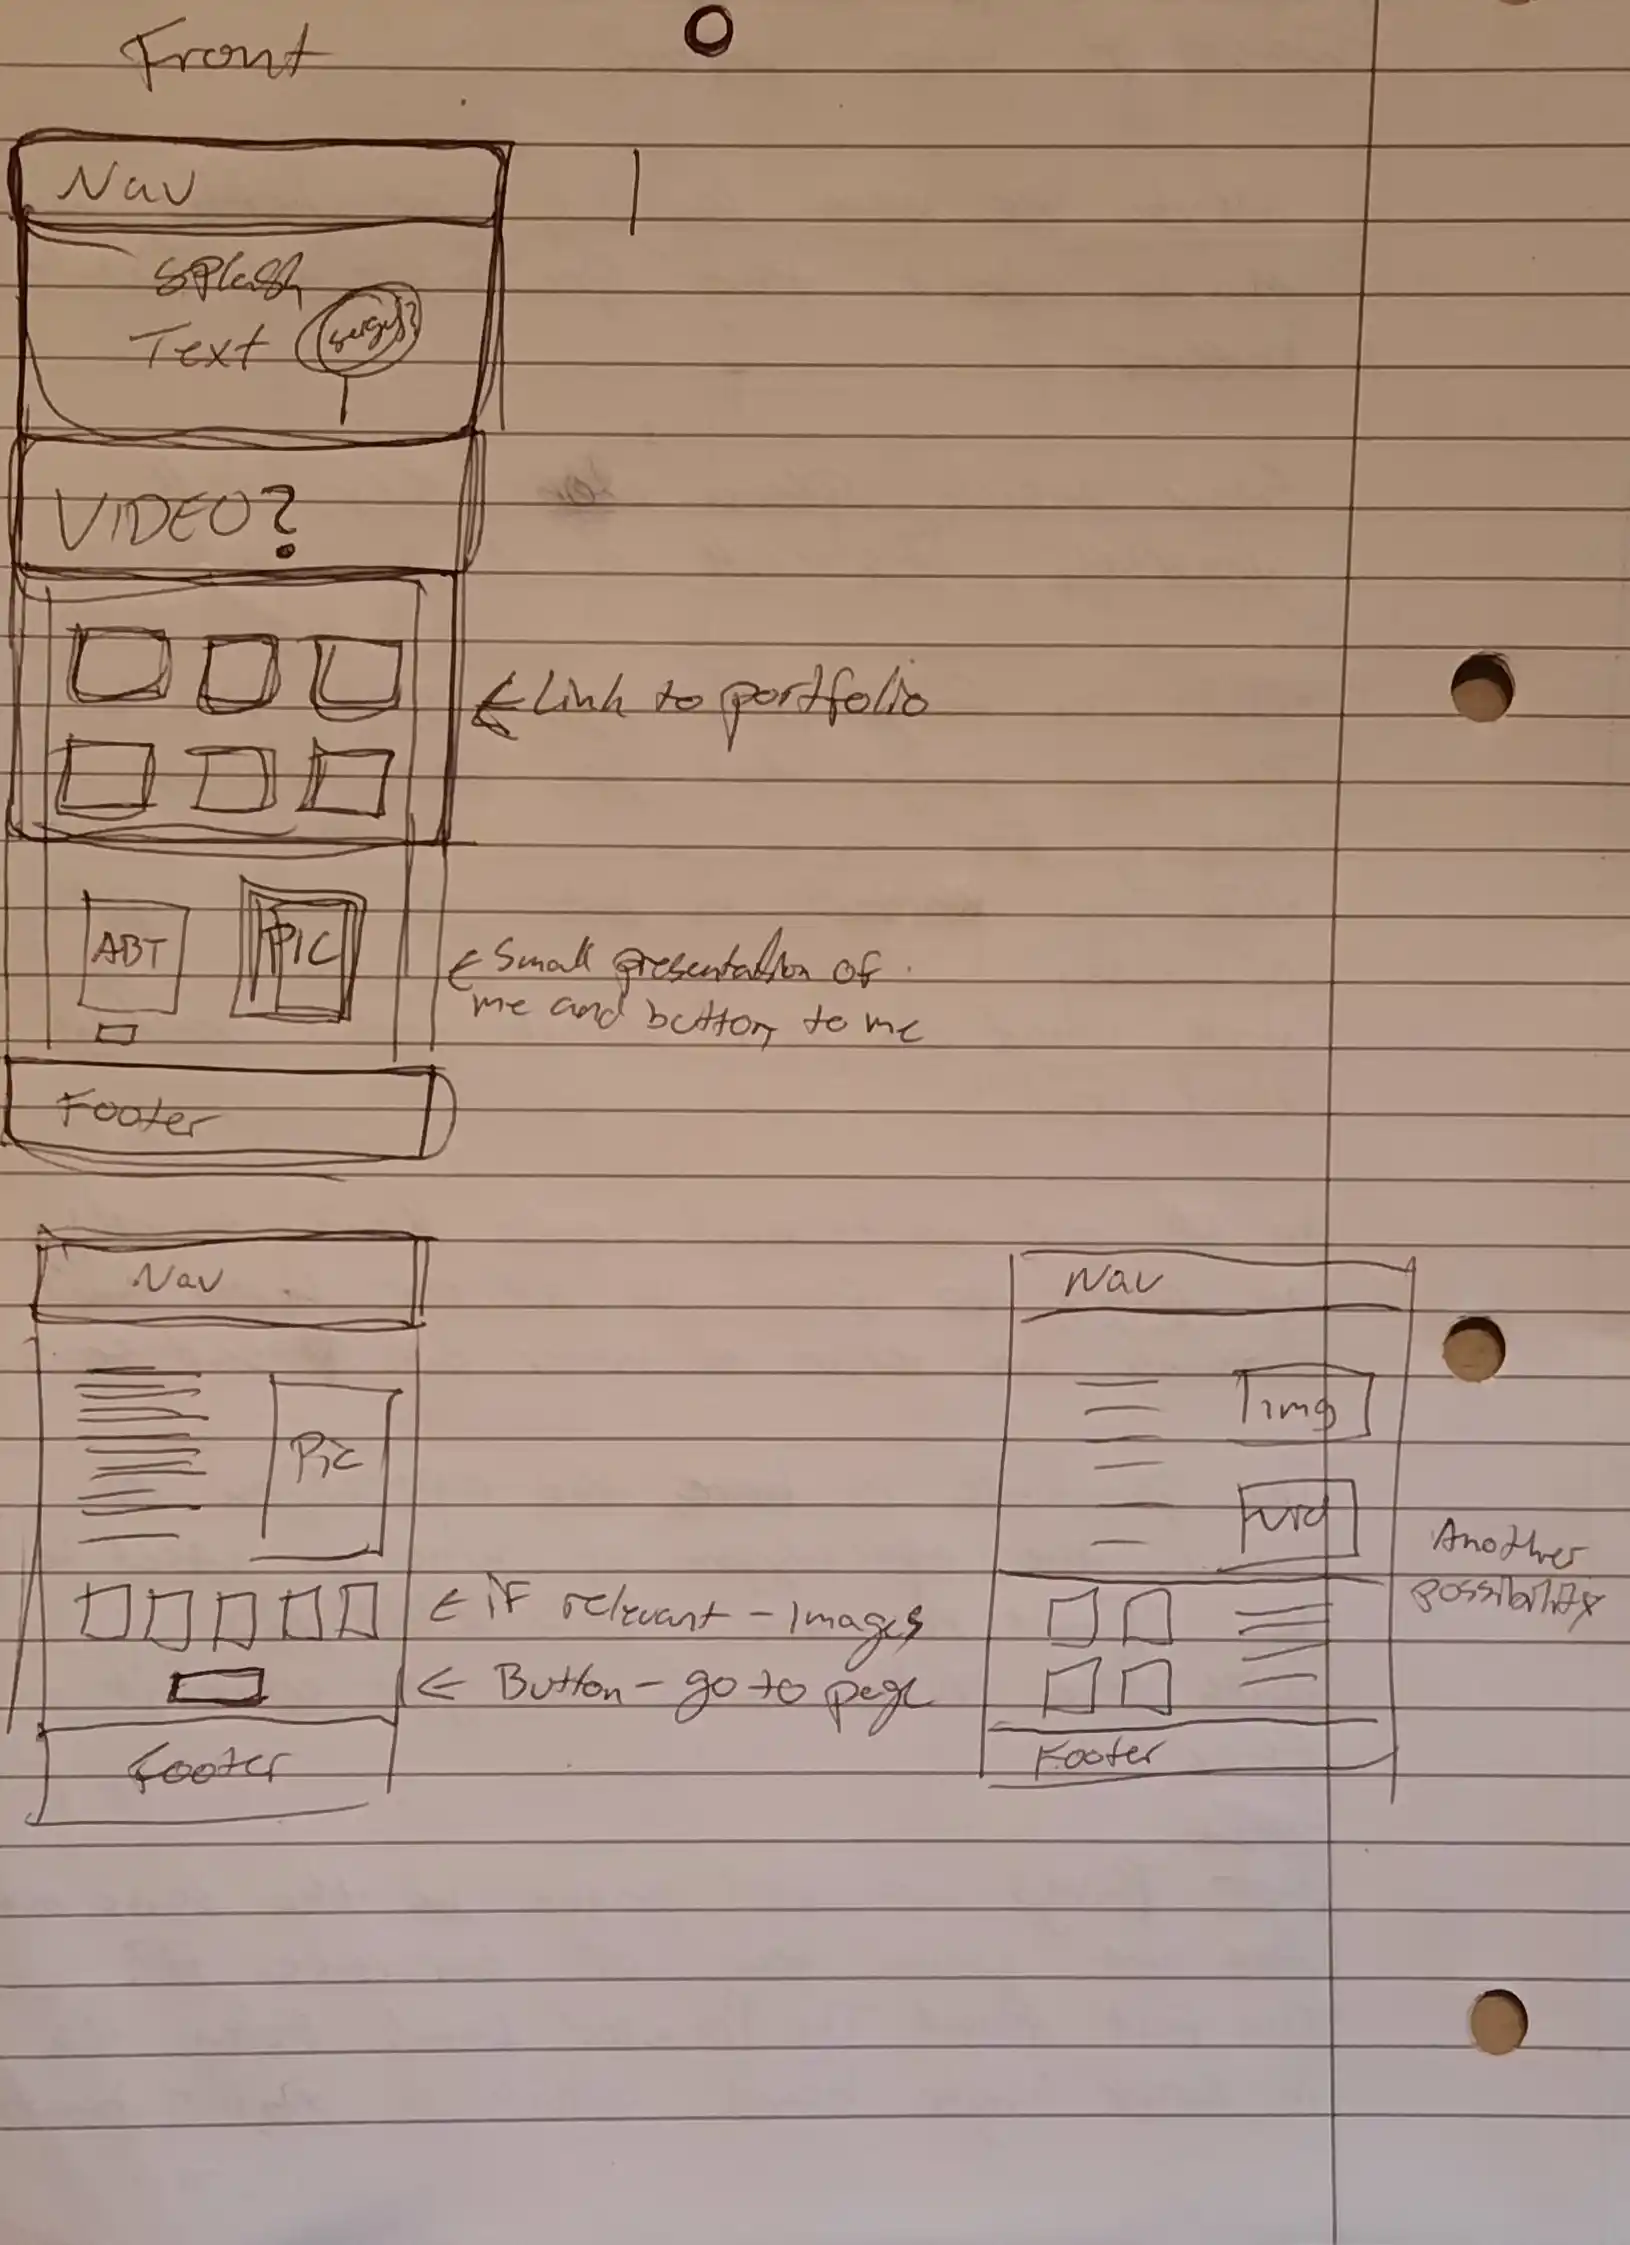 Front
Nav
Splash
Text
VIDEO?
← Link to portfolio
ABT
PIC
← Small presentation of
me and button to me
Footer
Nav
Pic
← if relevant - images
← Button - go to page
Footer
Nav
img
Another
possibility
Footer